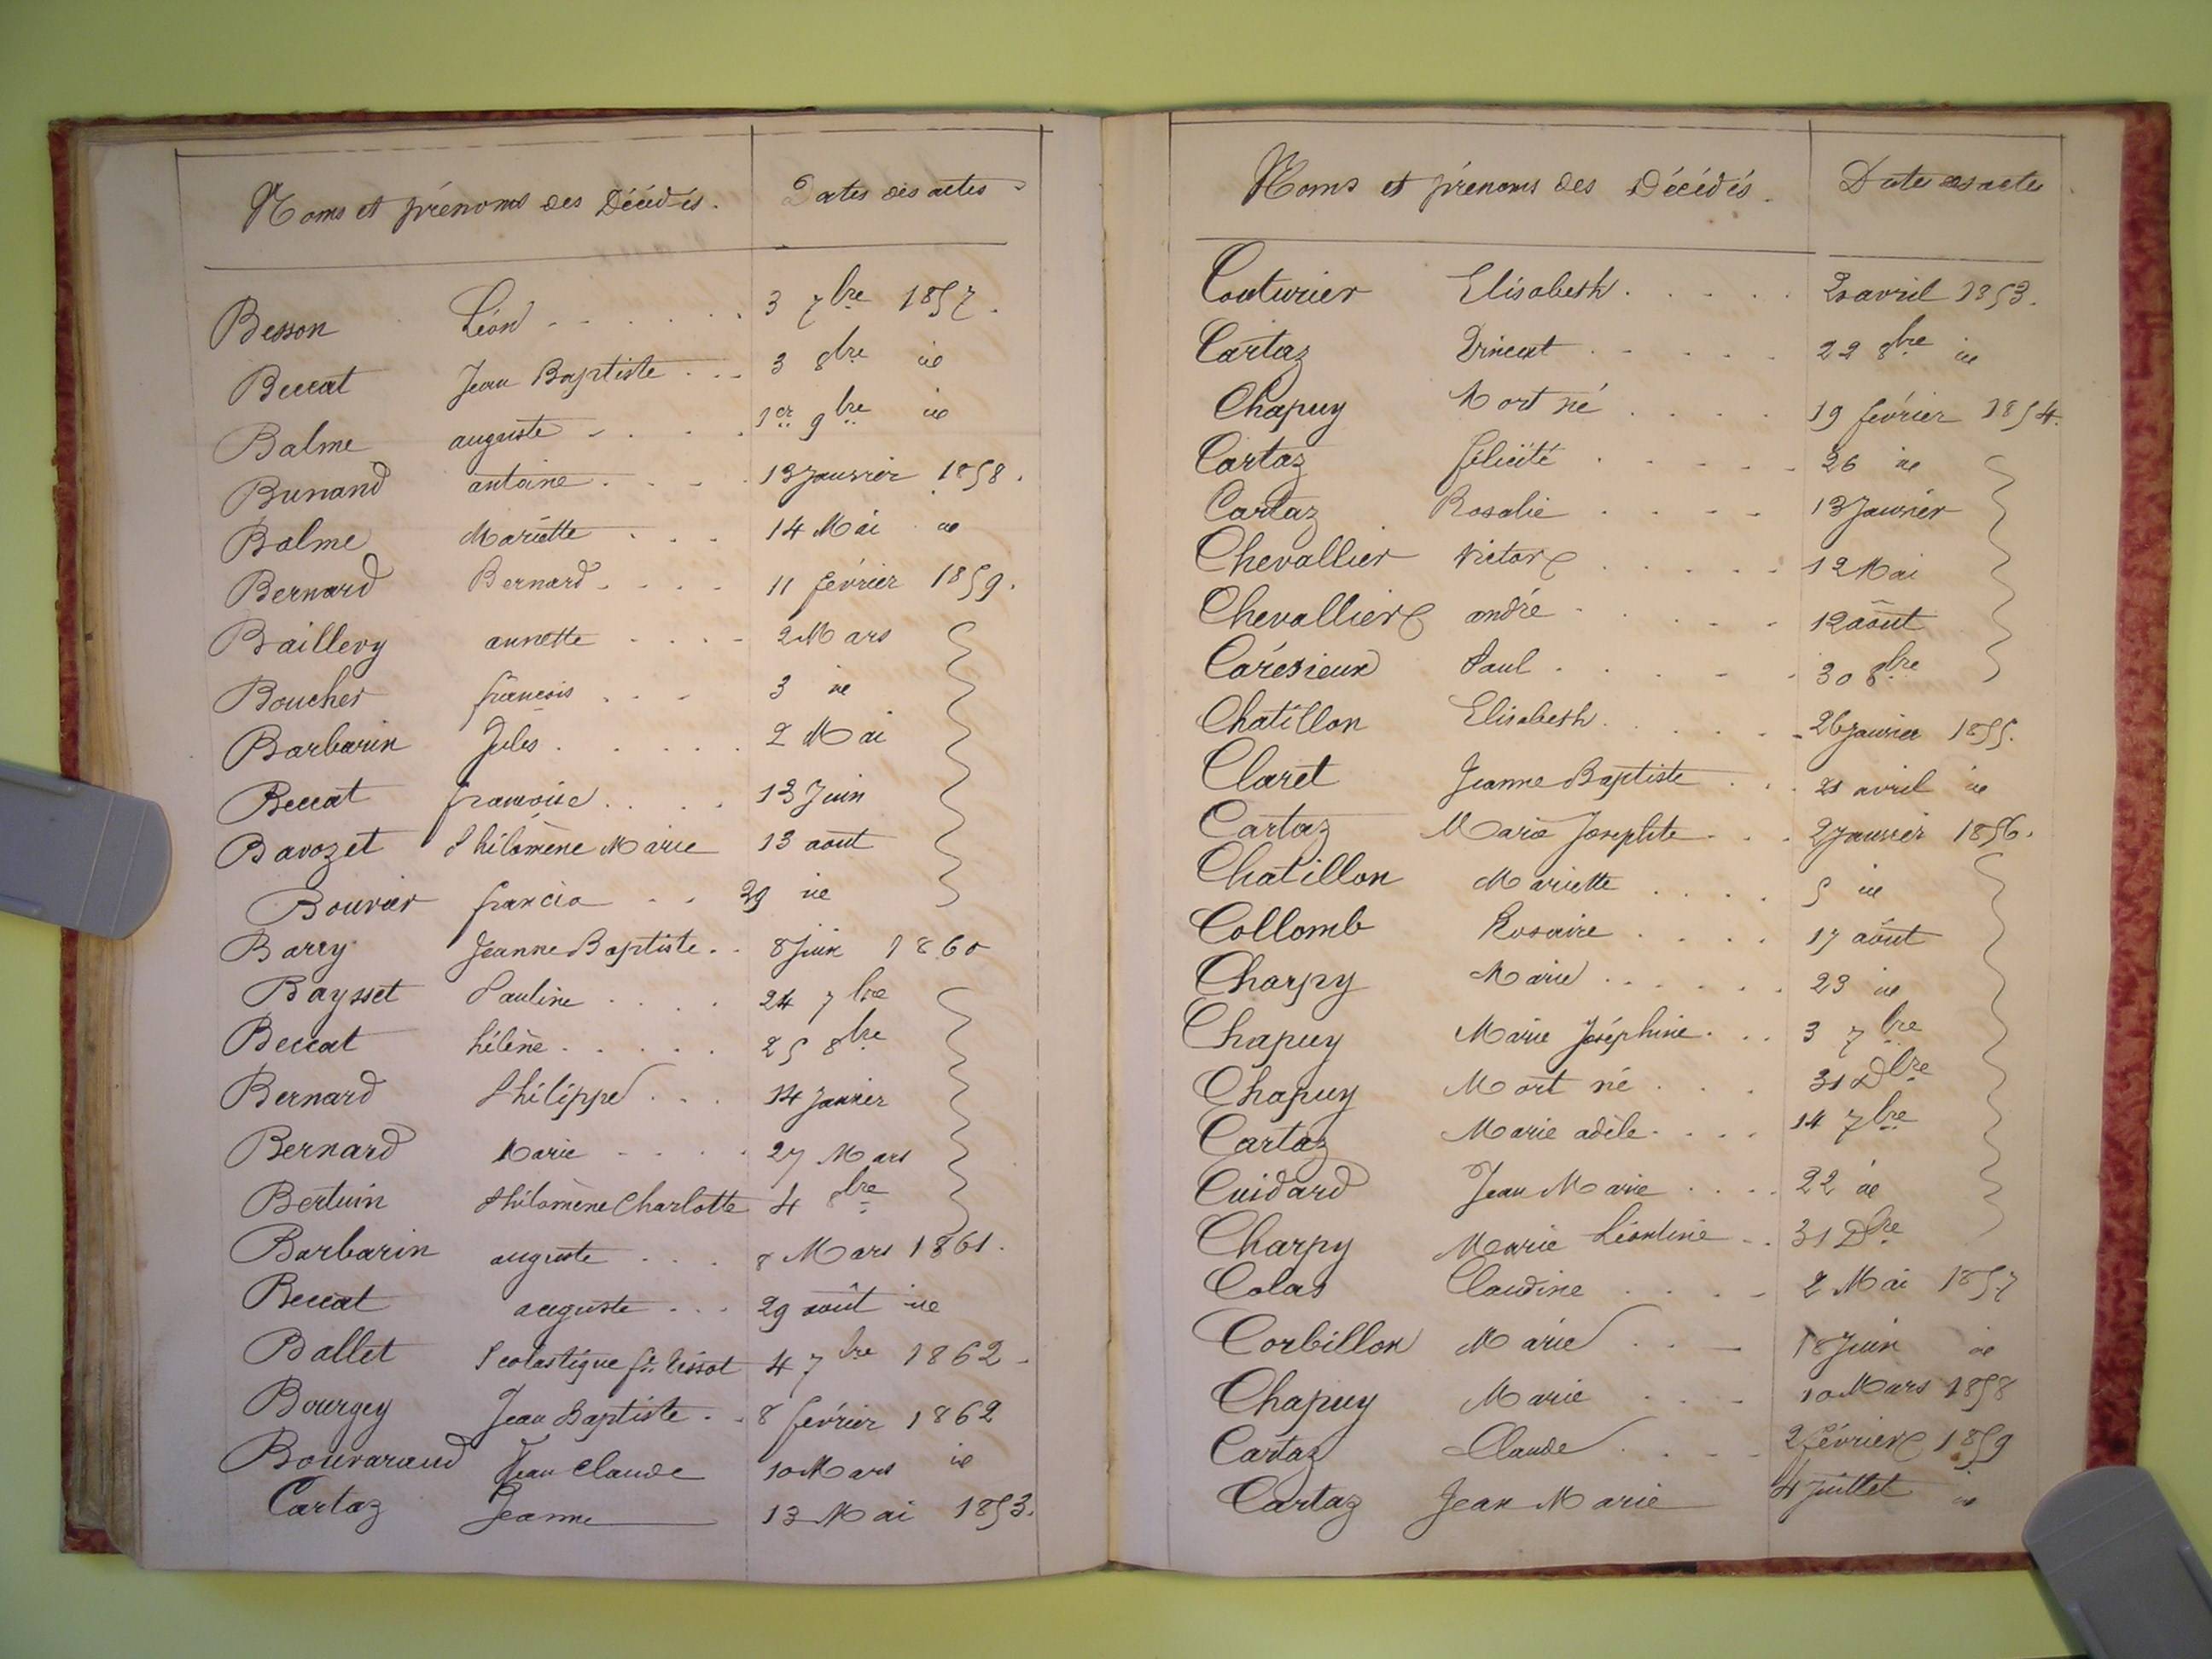 Noms et prénoms des Décédés. Dates des actes
Besson Léon 3 7bre 1857.
Beccat Jean Baptiste 3 8bre id
Balme auguste 1er 9bre id
Bunand antoine 13 Janvier 1858.
Balme Mariette 14 Mai id
Bernard Bernard 11 février 1859.
Baillevy annette 2 Mars
Boucher françois 3 id
Barbarin Jules 2 Mai
Beccat françoise 13 Juin
Bavozet Philomène Marie 13 août
Bouvier francia 29 id
Barry Jeanne Baptiste 8 Juin 1860
Baysset Pauline 24 7bre
Beccat hélène 25 8bre
Bernard Philippe 14 Janvier
Bernard Marie 27 Mars
Bertuin Philomène Charlotte 4 8bre
Barbarin auguste 8 Mars 1861.
Beccat auguste 29 août id
Ballet Scolastique fe Tissot 4 7bre 1862
Bourgey Jean Baptiste 8 février 1862
Bouvaraud Jean Claude 10 Mars id
Cartaz Jeanne 13 Mai 1853.
Noms et prénoms des Décédés. Dates des actes
Couturier Elisabeth avril 1853.
Cartaz Vincent 22 8bre id
Chapuy Mort né 19 février 1854.
Cartaz félicité 26 id
Cartaz Rosalie 13 Janvier
Chevallier Victor 12 Mai
Chevallier andré 12 août
Carésieux Paul 30 8bre
Chatillon Elisabeth 26 Janvier 1855.
Claret Jeanne Baptiste 21 avril id
Cartaz Marie Josephte 2 Janvier 1856.
Chatillon Mariette 5 id
Collomb Rosaire 17 août
Charpy Marie 23 id
Chapuy Marie Joséphine 3 7bre
Chapuy Mort né 31 Dbre
Cartaz Marie adèle 14 7bre
Cuidard Jean Marie 22 id
Charpy Marie Léontine 31 Dbre
Colas Claudine 2 Mai 1857
Corbillon Marie 18 Juin id
Chapuy Marie 10 Mars 1858
Cartaz Claude 2 février 1859
Cartaz Jean Marie 4 Juillet id